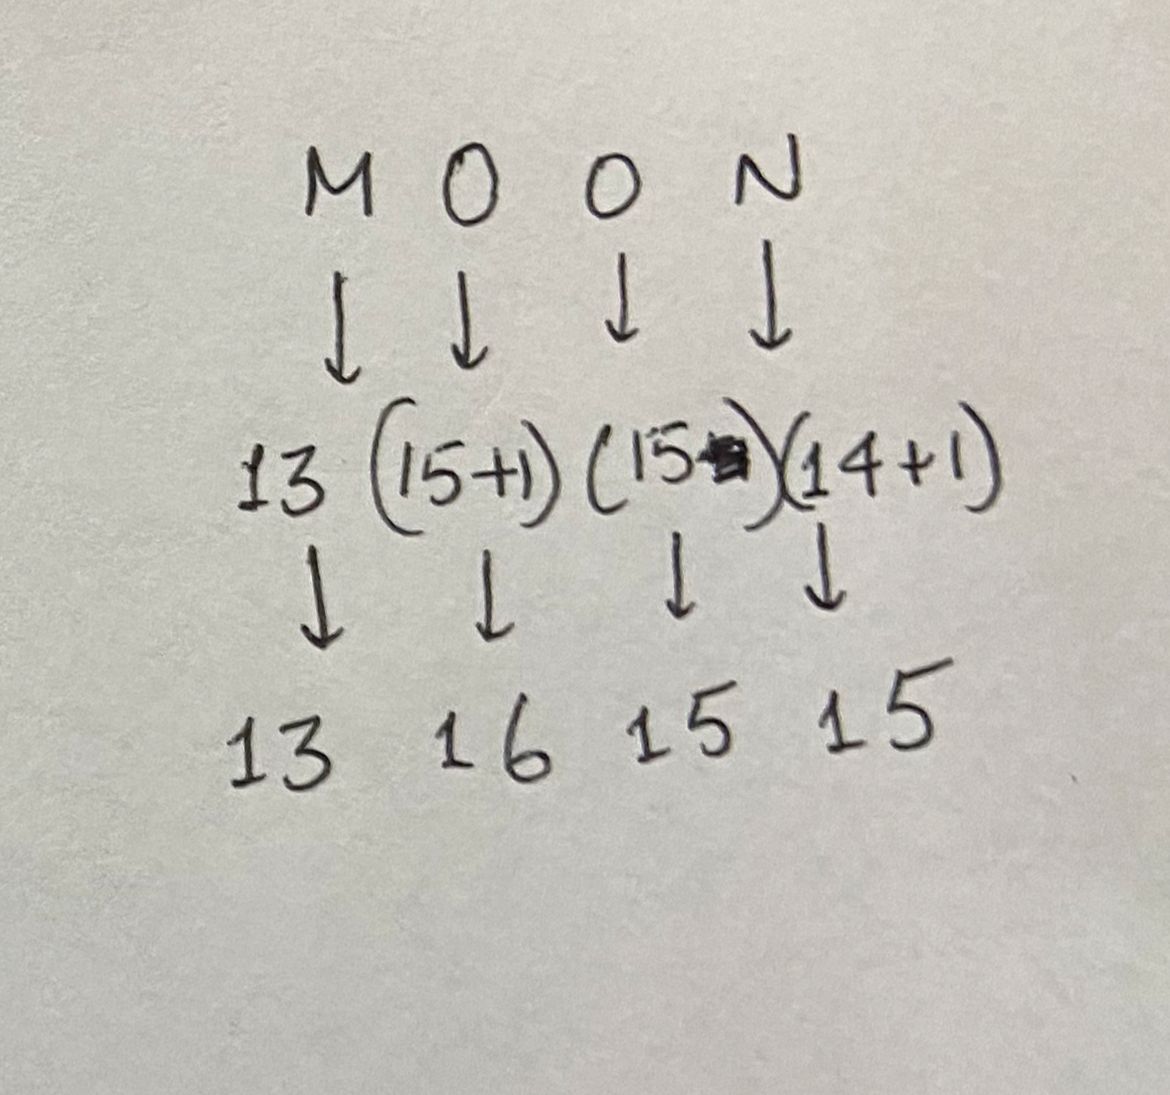 M O O N
↓ ↓ ↓ ↓
13 (15+1) (15) (14+1)
↓ ↓ ↓ ↓
13 16 15 15